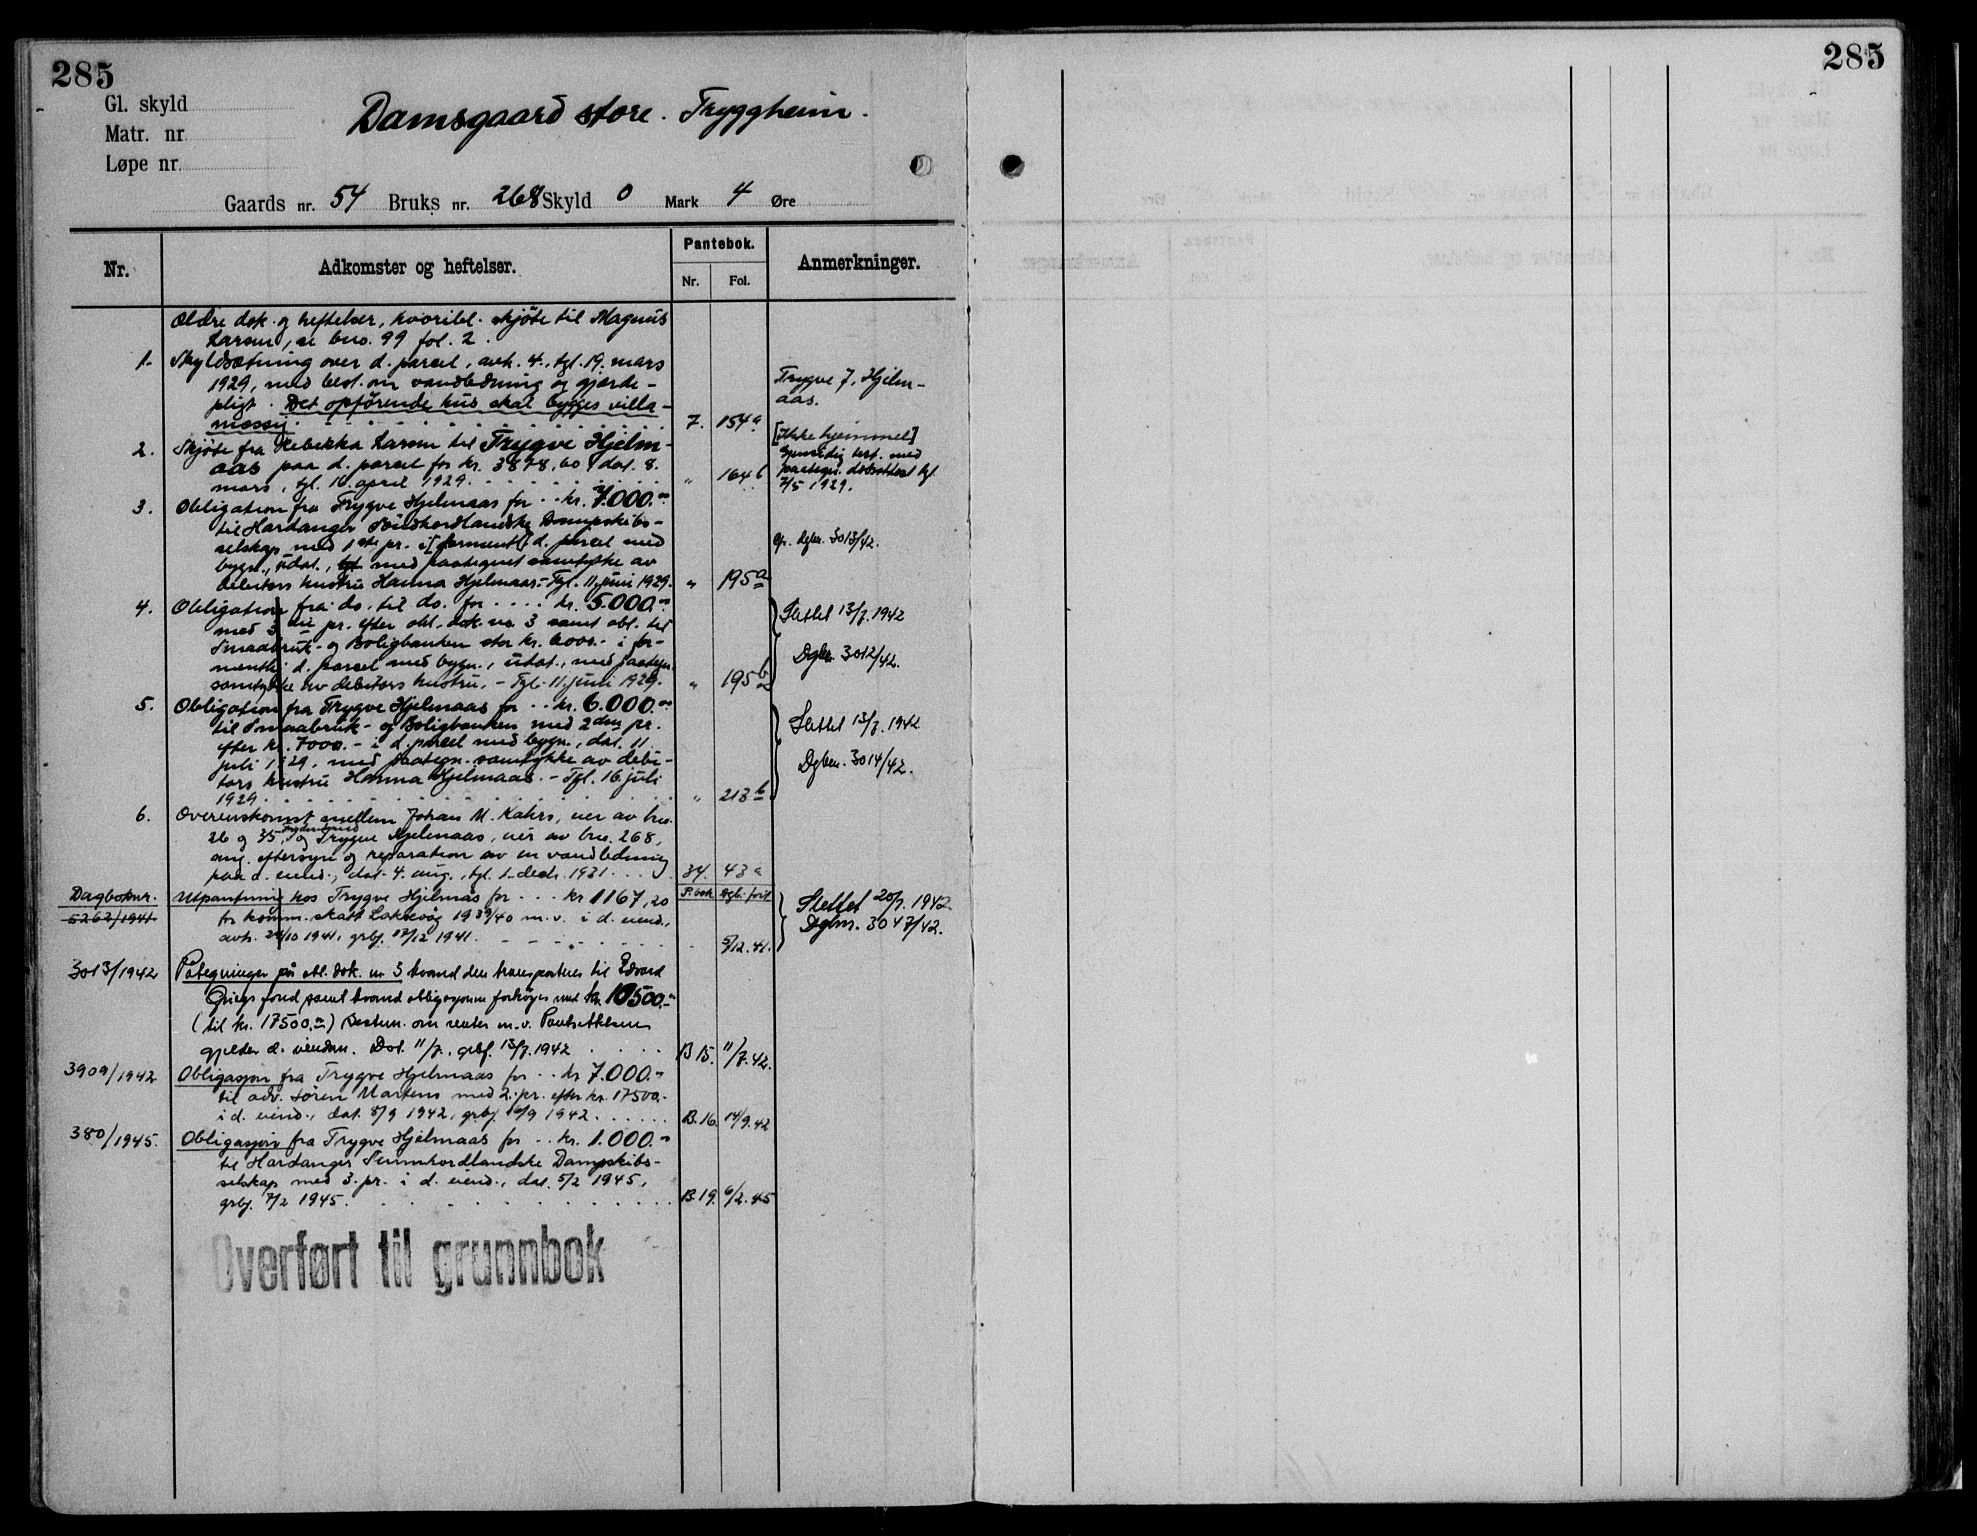 285
285
Gl. skyld
Matr. nr.
Løpe nr.
Damsgaard store. Tryggheim.
Gaards nr. 54 Bruks nr. 268 Skyld 0 Mark 4 Øre
Nr.
Adkomster og heftelser.
Pantebok.
Nr.
Fol.
Anmerkninger.
Ældre dok. og heftelser, hvoribl. skjøte til Magnus
Larsen, se bno. 99 fol. 2.
1. Skyldsætning over d. parcel, avh. 4., tgl. 19. mars
1929, med best. om vandledning og gjærde-
pligt. Det opførende hus skal bygges villa-
mæssig. 7. 154a
Trygve J. Hjelm-
aas.
2. Skjøte fra Rebekka Larsen til Trygve Hjelm-
aas paa d. parcel for kr. 3878,60, dat. 8.
mars, tgl. 10 april 1929. " 164b
[Ikke hjemmel]
Gjensidig test. med
7/5 1929.
3. Obligation fra Trygve Hjelmaas for .. kr. 7.000.00
til Hardanger Søndhordlandske Dampskibs-
selskap med 1ste pr. i [forment] d. parcel med
bygn., udat., tgl med paategnet samtykke av
debitors hustru Hanna Hjelmaas. - Tgl. 11. juni 1929. " 195a
Cfr. dgbnr. 3013/42.
4. Obligation fra do. til do. for .... kr. 5.000.00
med 3die pr. efter obl. dok. no. 3 samt obl. til
Smaabruk- og Boligbanken stor kr. 6000.- i for-
mentlig d. parcel med bygn., udat., med paategn.
samtykke av debitors hustru. - Tgl. 11. juni 1929. " 195b
Slettet 13/7. 1942
Dgbnr. 3012/42.
5. Obligation fra Trygve Hjelmaas for .. kr. 6.000.00
til Smaabruk- og Boligbanken med 2den pr.
efter kr. 7000.- i d. parcel med bygn., dat. 11
juli 1929, med paategn. samtykke av debi-
tors hustru Hanna Hjelmaas. - Tgl. 16. juli
1929. " 213b
Slettet 13/7. 1942
Dgbnr. 3014/42.
6. Overenskomst mellem Johan M. Kahrs, eier av bno.
26 og 35, og Trygve Hjelmaas, eier av bno. 268,
ang. eftersyn og reparation av en vandledning
paa d. eiend., dat. 4. aug., tgl. 1. decbr. 1931. 34. 43a
Dagboknr.
P.bok Dgb. ført
5262/1941 Utpantning hos Trygve Hjelmås for ... kr 1167,20
for komm. skatt Laksevåg 1939/40 m.v. i d. eiend.,
1941, grbf. 12/12 1941. 5/12.41.
Slettet 20/7. 1942
Dgbnr. 3047/42.
3013/1942 Påtegninger på obl. dok. nr 3 hvorved den transporteres til Edvard
Griegs fond samt hvorved obligasjonen forhøyes med kr. 10500.00
(til kr. 17500.00) Bestem. om renter m.v. Panteretten
gjelder d. eiendom. Dat. 11/7., grbf. 13/7. 1942 B 15. 11/7.42.
3909/1942 Obligasjon fra Trygve Hjelmaas for .. kr 7.000.00
til adv. Sören Martens med 2. pr. efter kr. 17500.-
i d. eiend., dat. 8/9 1942, grbf. 16/9 1942. B.16. 14/9.42
380/1945. Obligasjon fra Trygve Hjelmaas for .. kr. 1.000.00
til Hardanger Sunnhordlandske Dampskibs-
selskap med 3. pr. i d. eiend., dat. 5/2 1945,
grbf. 7/2 1945. B.19. 6/2.45
Overført til grunnbok